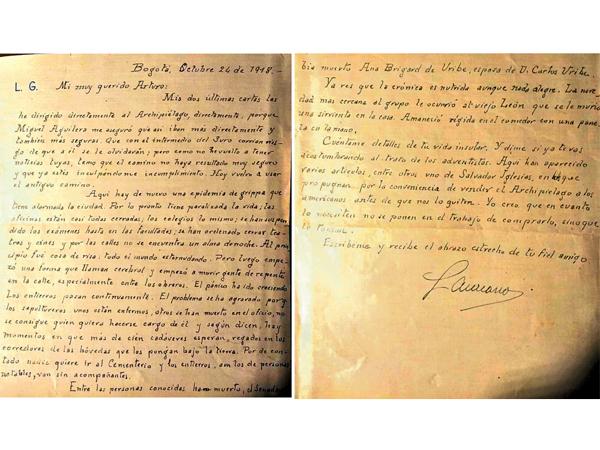 Bogotá, Octubre 24 de 1918.-
L. G. Mi muy querido Arturo:
Mis dos últimas cartas las
he dirigido directamente al Archipiélago, directamente, porque
Miguel Aguilera me aseguró que así iban mas directamente y
tambien más seguras. Que con el intermedio del Juro corrian ries-
go de que a él se le olvidaran; pero como no he vuelto a tener
noticias tuyas, temo que el camino no haya resultado muy seguro
y que ya estés inculpándome incumplimiento. Hoy vuelvo a usar
el antiguo camino.
Aquí hay de nuevo una epidemia de grippa que
tiene alarmada la ciudad. Por lo pronto tiene paralizada la vida; las
oficinas están casi todas cerradas; los colegios lo mismo; se han suspen-
dido los exámenes hasta en las facultades; se han ordenado cerrar tea-
tros y cines y por las calles no se encuentra un alma de noche. Al prin-
cipio fue cosa de risa: todo el mundo estornudando. Pero luego empe-
zó una forma que llaman cerebral y empezó a morir gente de repente
en la calle, especialmente entre los obreros. El pánico ha ido creciendo.
Los entierros pasan continuamente. El problema se ha agravado porq.
los sepultureros unos están enfermos, otros se han muerto en el oficio, no
se consigue quien quiera hacerse cargo de él y según dicen, hay
momentos en que más de cien cadáveres esperan, regados en los
corredores de las bóvedas que los pongan bajo la tierra. Por de con-
tado nadie quiere ir al Cementerio y los entierros, aun los de personas
notables, van sin acompañantes.
Entre las personas conocidas han muerto, el Senador
bia muerto Ana Brigard de Uribe, esposa de D. Carlos Uribe.
Ya ves que la crónica es nutrida aunque nada alegre. La nove-
dad mas cercana al grupo le ocurrió al viejo León que se le murió
una sirvienta en la casa. Amaneció rígida en el comedor con una pane-
la en la mano.
Cuéntame detalles de tu vida insular. Y dime si ya te vas
acostumbrando al trato de los adventistas. Aquí han aparecido
varios artículos, entre otros uno de Salvador Iglesias, en que
propugnan por la conveniencia de vender el Archipiélago a los
americanos antes de que nos lo quiten. Yo creo que en cuanto
lo necesiten no se ponen en el trabajo de comprarlo, sino que
lo toman.
Escribeme y recibe el abrazo estrecho de tu fiel amigo
Laureano